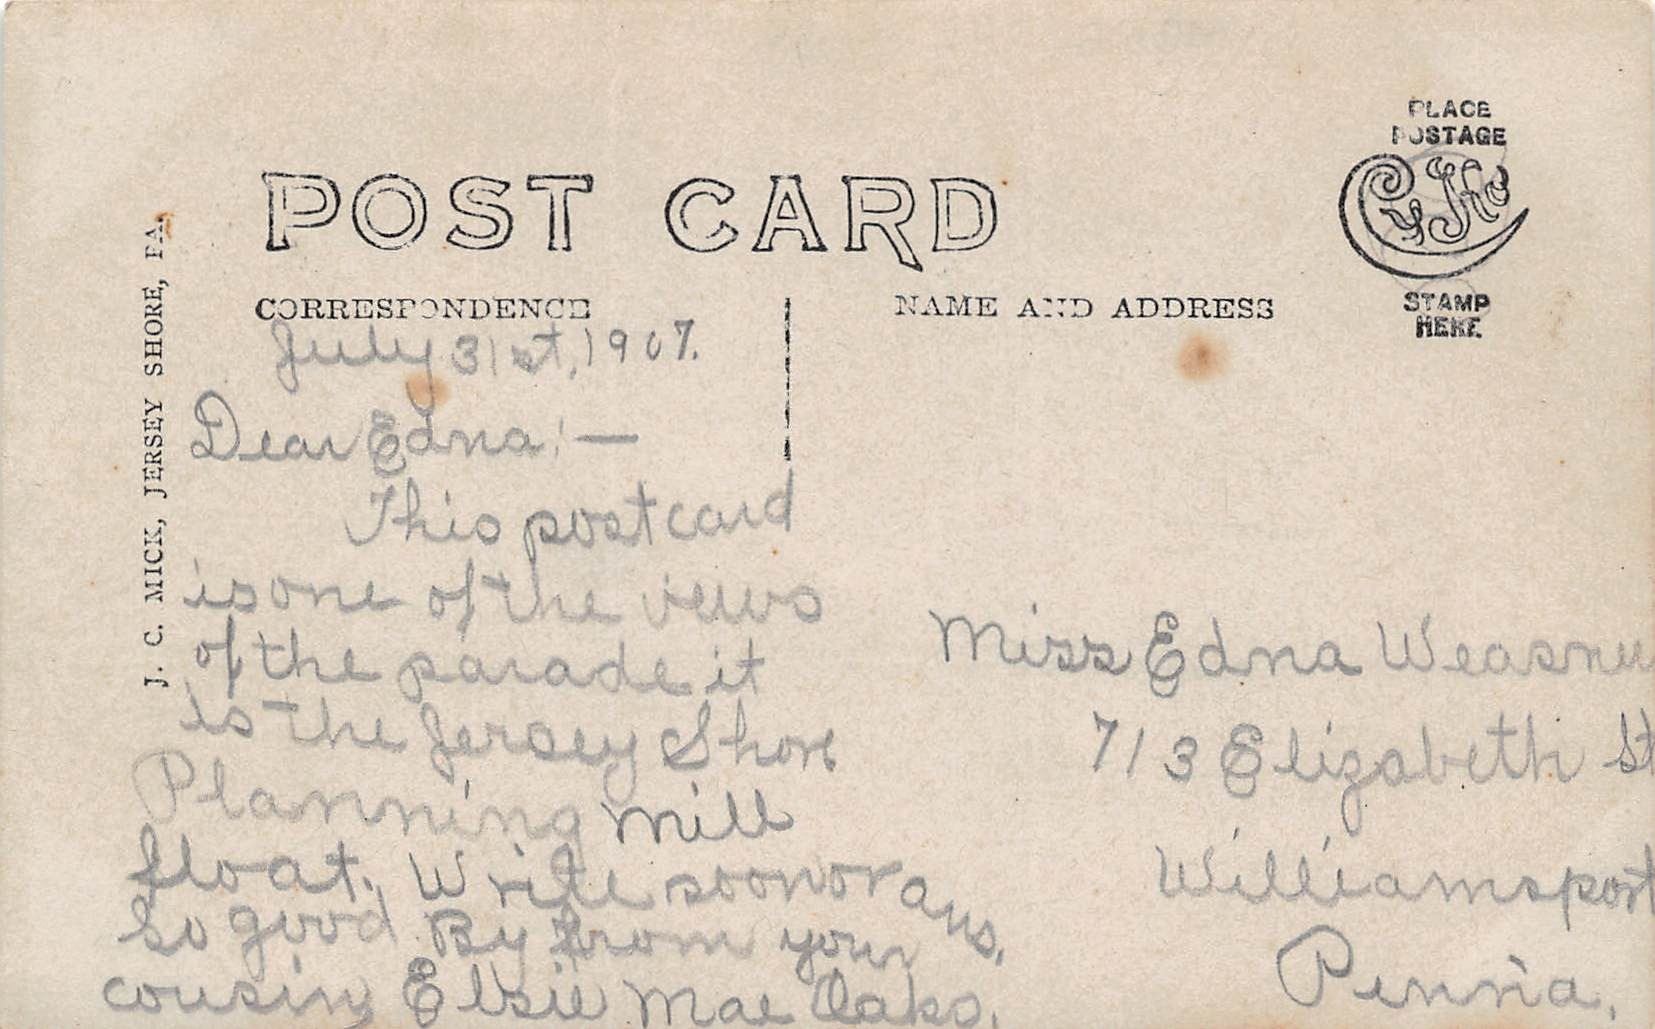 PLACE
POSTAGE
CYKO
STAMP
HERE.
POST CARD
CORRESPONDENCE
NAME AND ADDRESS
J. C. MICK, JERSEY SHORE, PA.
July 31st, 1907.
Dear Edna:—
This postcard
is one of the veiws
of the parade it
is the Jersey Shore
Planning Mill
float. Write soon or ans.
So good By from your
cousin Elsie Mae Oaks.
Miss Edna
713 Elizabeth St
Williamsport
Penn'a.